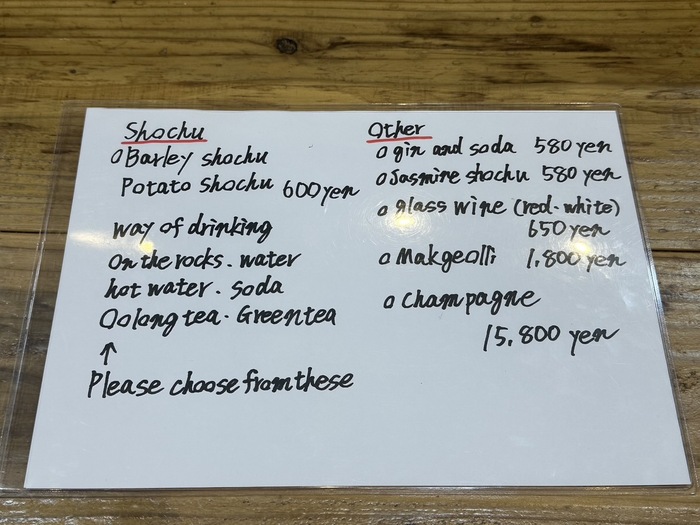 Shochu
o Barley shochu
Potato shochu 600yen
way of drinking
on the rocks. water
hot water. soda
Oolong tea. Green tea
↑
Please choose from these
Other
o gin and soda 580 yen
o Jasmine shochu 580 yen
o glass wine (red. white)
650 yen
o Makgeolli 1,800 yen
o champagne
15.800 yen